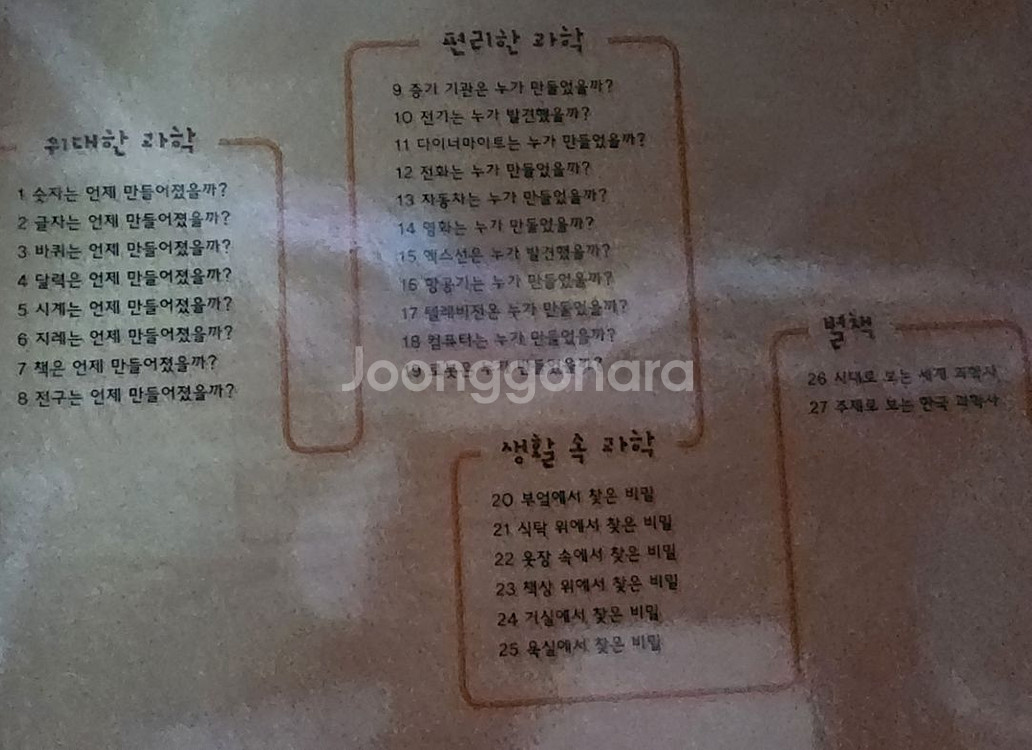 위대한 과학
1 숫자는 언제 만들어졌을까?
2 글자는 언제 만들어졌을까?
3 바퀴는 언제 만들어졌을까?
4 달력은 언제 만들어졌을까?
5 시계는 언제 만들어졌을까?
6 지레는 언제 만들어졌을까?
7 책은 언제 만들어졌을까?
8 전구는 언제 만들어졌을까?
편리한 과학
9 증기 기관은 누가 만들었을까?
10 전기는 누가 발견했을까?
11 다이너마이트는 누가 만들었을까?
12 전화는 누가 만들었을까?
13 자동차는 누가 만들었을까?
14 영화는 누가 만들었을까?
15 엑스선은 누가 발견했을까?
16 항공기는 누가 만들었을까?
17 텔레비전은 누가 만들었을까?
18 컴퓨터는 누가 만들었을까?
19 로봇은 누가 만들었을까?
Joonggonara
생활 속 과학
20 부엌에서 찾은 비밀
21 식탁 위에서 찾은 비밀
22 옷장 속에서 찾은 비밀
23 책상 위에서 찾은 비밀
24 거실에서 찾은 비밀
25 욕실에서 찾은 비밀
별책
26 시대로 보는 세계 과학사
27 주제로 보는 한국 과학사